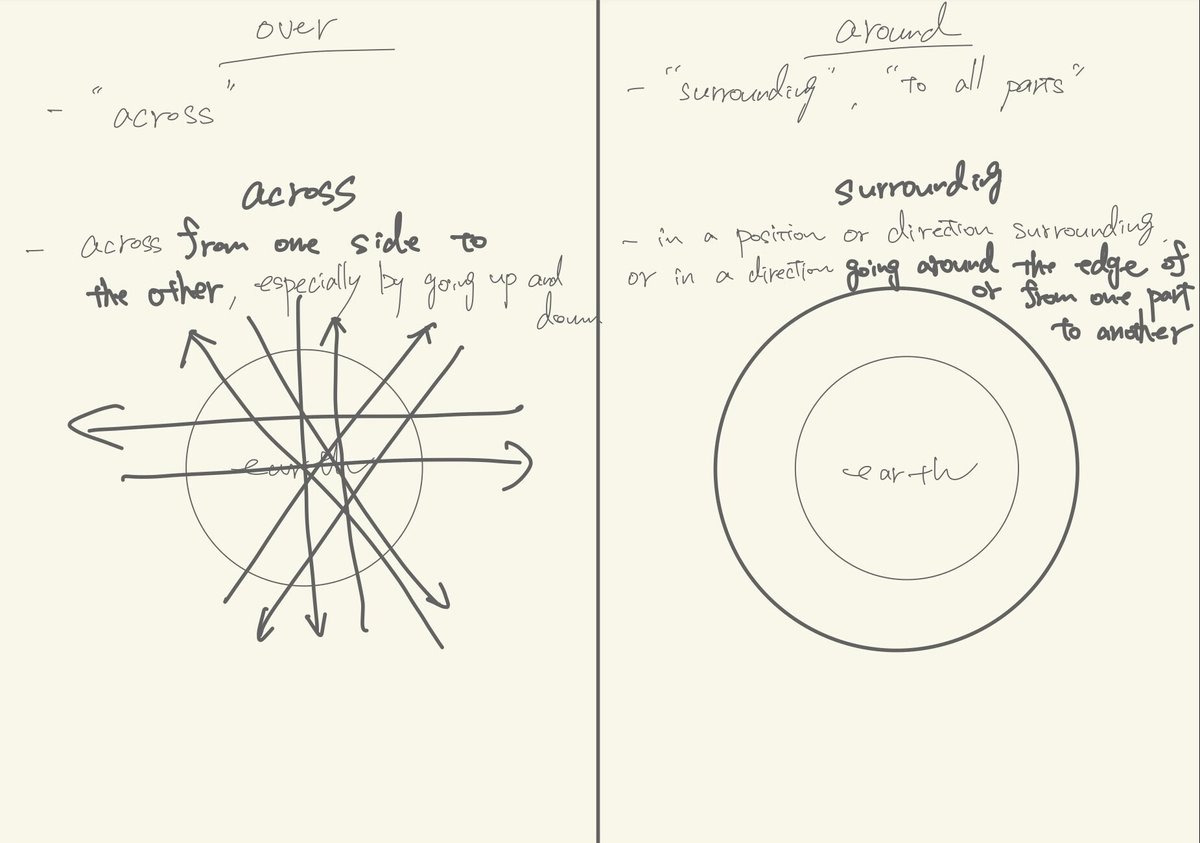 over
- "across"
across
- across from one side to
the other, especially by going up and
down
earth
around
- "surrounding", "to all parts"
surrounding
- in a position or direction surrounding,
or in a direction going around the edge of
or from one part
to another
earth